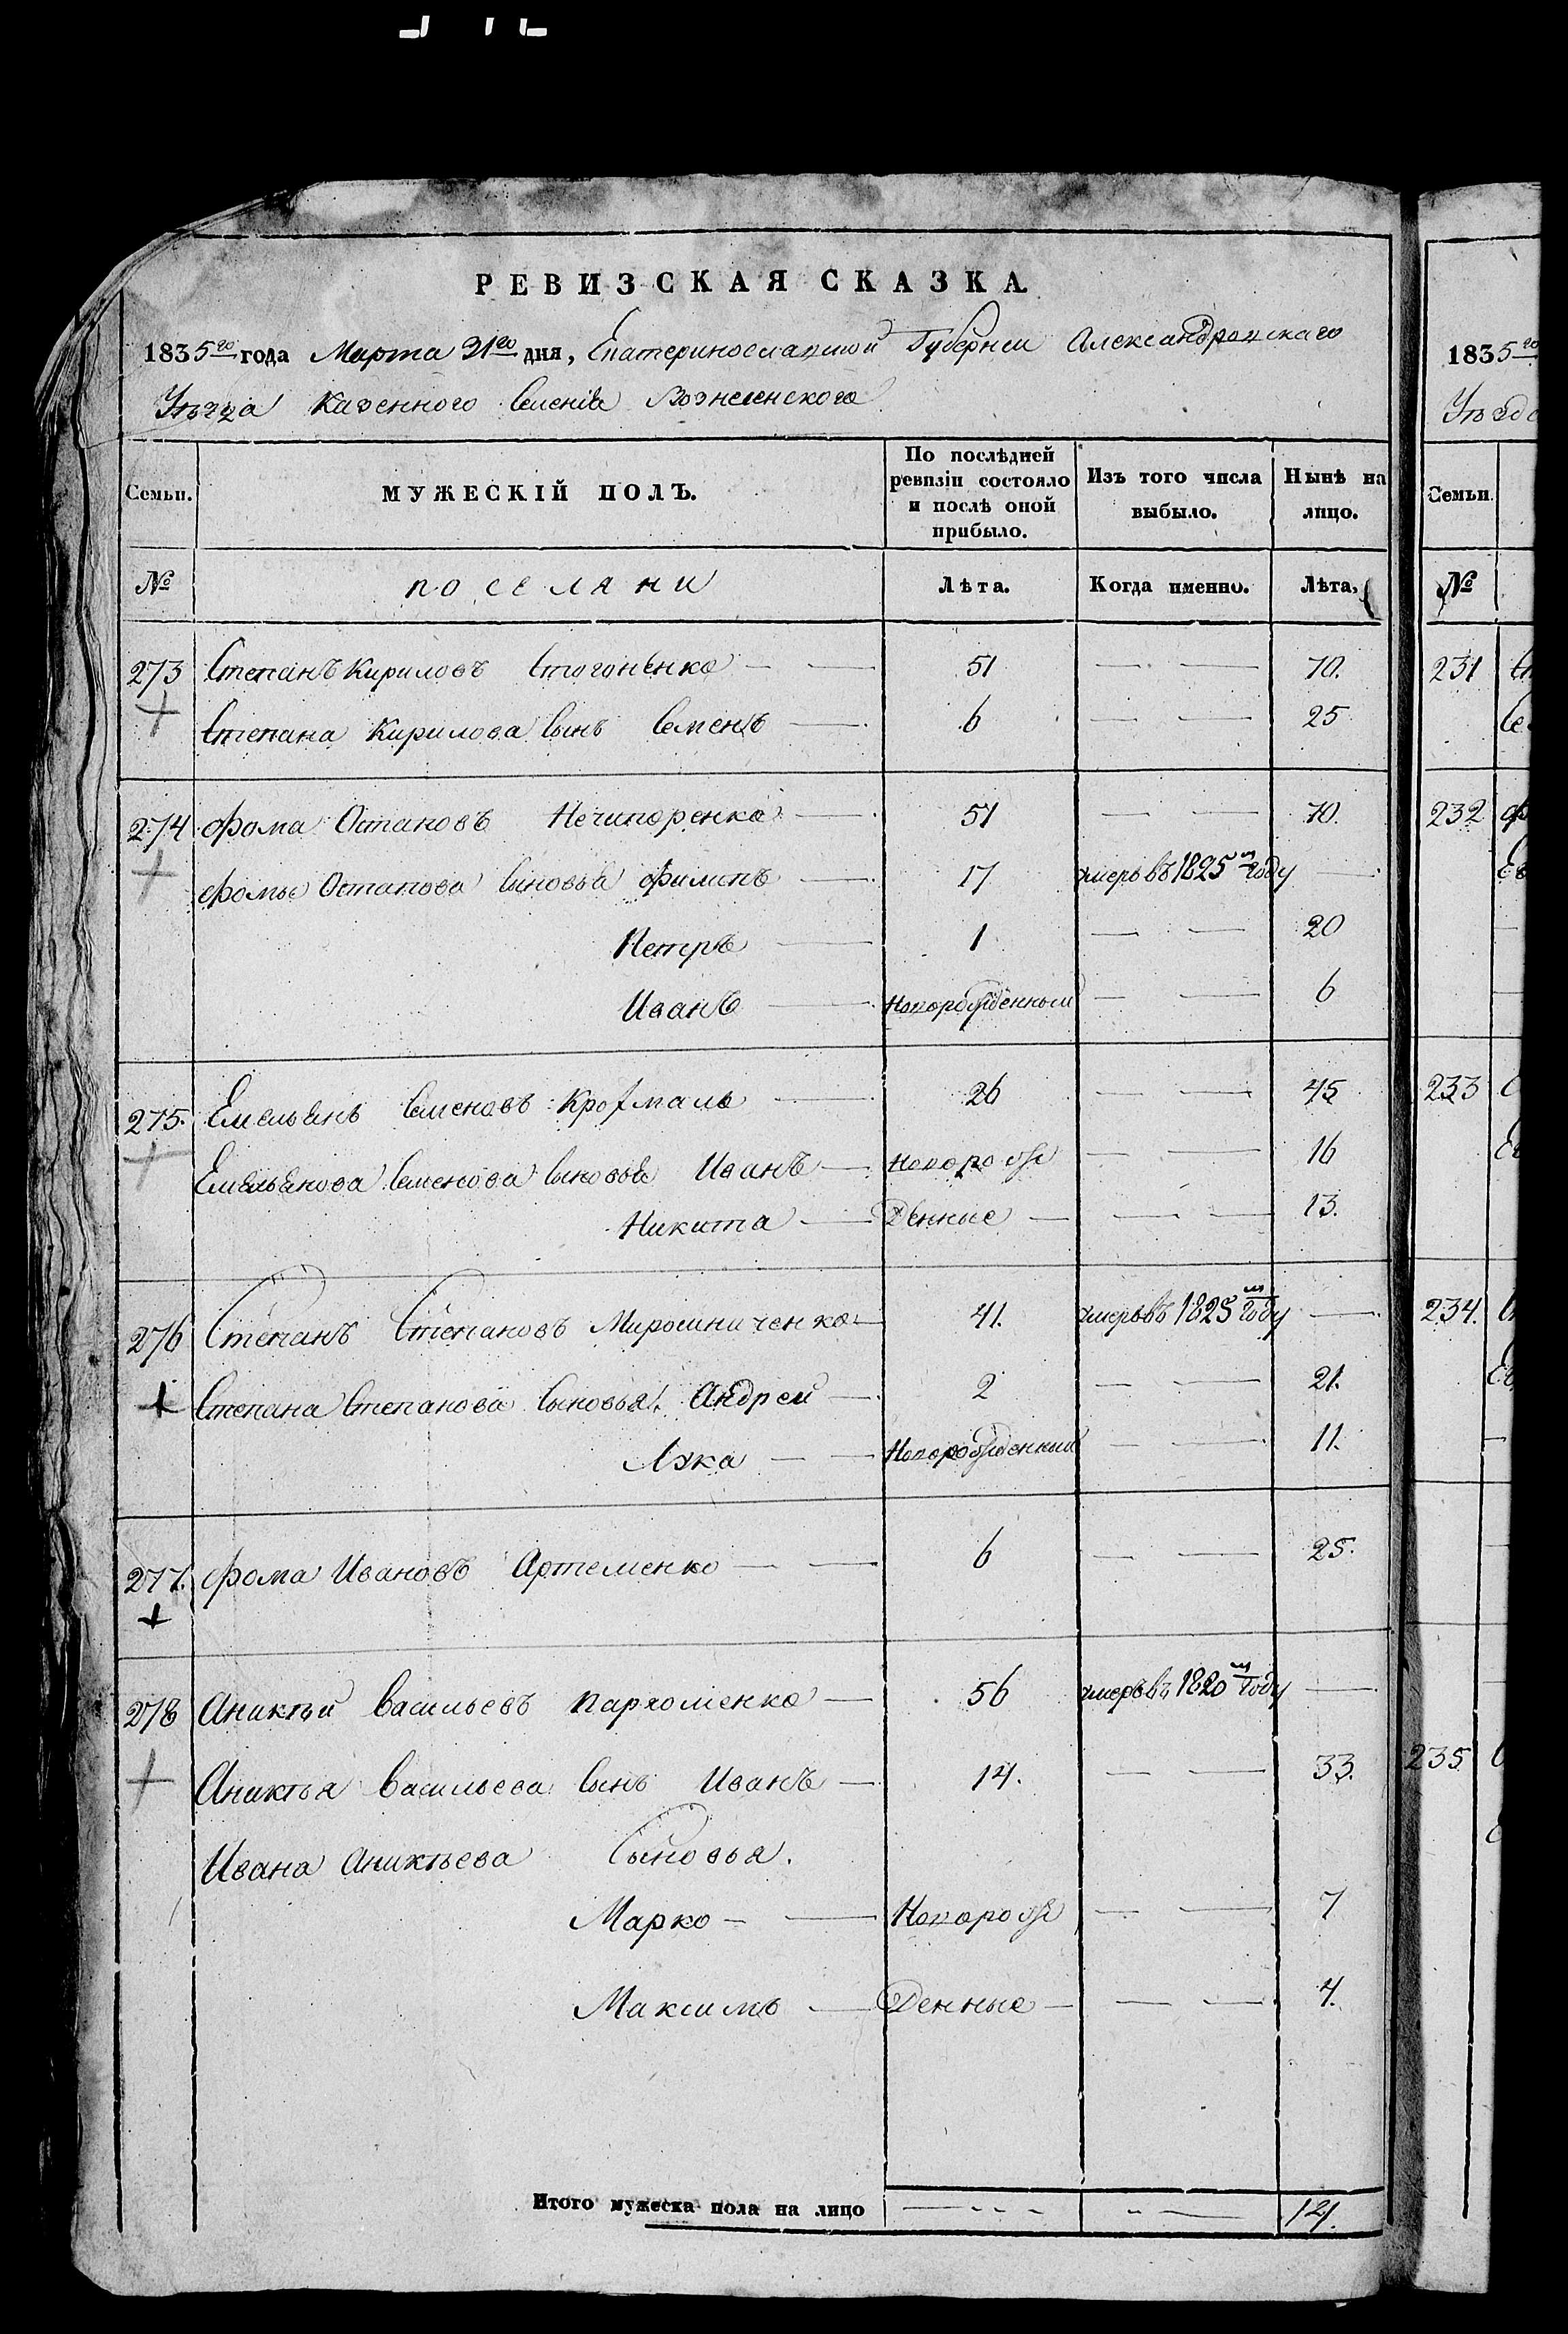 РЕВИЗСКАЯ СКАЗКА
1835го года Марта 31го дня, Екатеринославской Губернии Александровскаго
Уѣзда Казенного Селенія Вознесенского
Семьи. МУЖЕСКІЙ ПОЛЪ. По послѣдней ревизіи состояло и послѣ оной прибыло. Изъ того числа выбыло. Нынѣ на лицо.
№ поселяни Лѣта. Когда именно. Лѣта.
273 Степанъ Кириловъ Стогоненко 51 — — 70.
Степана Кирилова Сынъ Семенъ 6 — — 25
274 Фома Остаповъ Нечипоренко 51 — — 70.
Фомы Остапова Сыновья Филипъ 17 умеръ въ 1825м году —
Петръ 1 — — 20
Иванъ Новорожденный — — 6
275. Емельянъ Семеновъ Крохмаль 26 — — 45
Емельянова Семенова Сыновья Иванъ Новорож — — 16
Никита Денные — — 13.
276 Степанъ Степановъ Мирошниченко 41. умеръ въ 1825м году —
Степана Степанова Сыновья: Андрей 2 — — 21.
Лука Новорожденный — — 11.
277. Фома Ивановъ Артеменко 6 — — 25.
278 Аникѣй Васильевъ Пархоменко 56 умеръ въ 1820м году —
Аникѣя Васильева Сынъ Иванъ 14. — — 33.
Ивана Аникѣева Сыновья.
Марко Новорож — — 7
Максимъ Денные — — 4.
Итого мужеска пола на лицо — — 12.
1835го
Уѣзд
Семьи.
№
231
232
233
234.
235